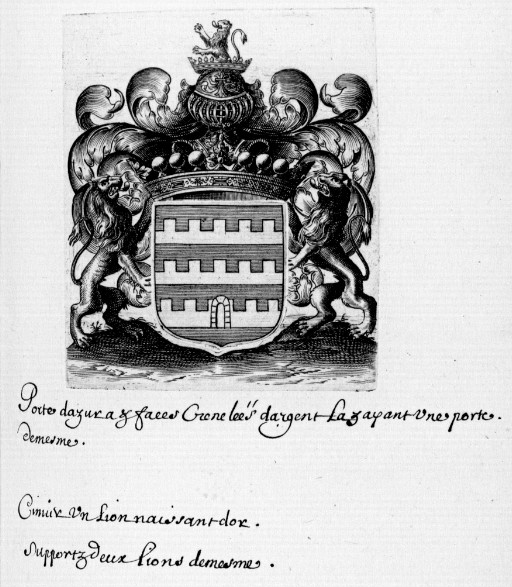 Porte dazur a 3 faces Creneleés dargent La 3 ayant Vne porte .
demesme .
Cimiir Vn Lion naissant dor .
Supportz deux lions demesme .